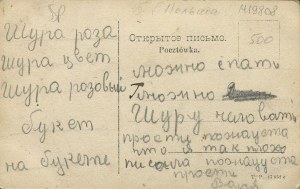 Польша
419808
500
Открытое письмо.
Pocztówka.
Шура роза
шура цвет
Шура розовый
букет
на букете
можно спать
можно
Шуру
прости пожалуста
что я так плохо
писала пожалуста
прости
Валя